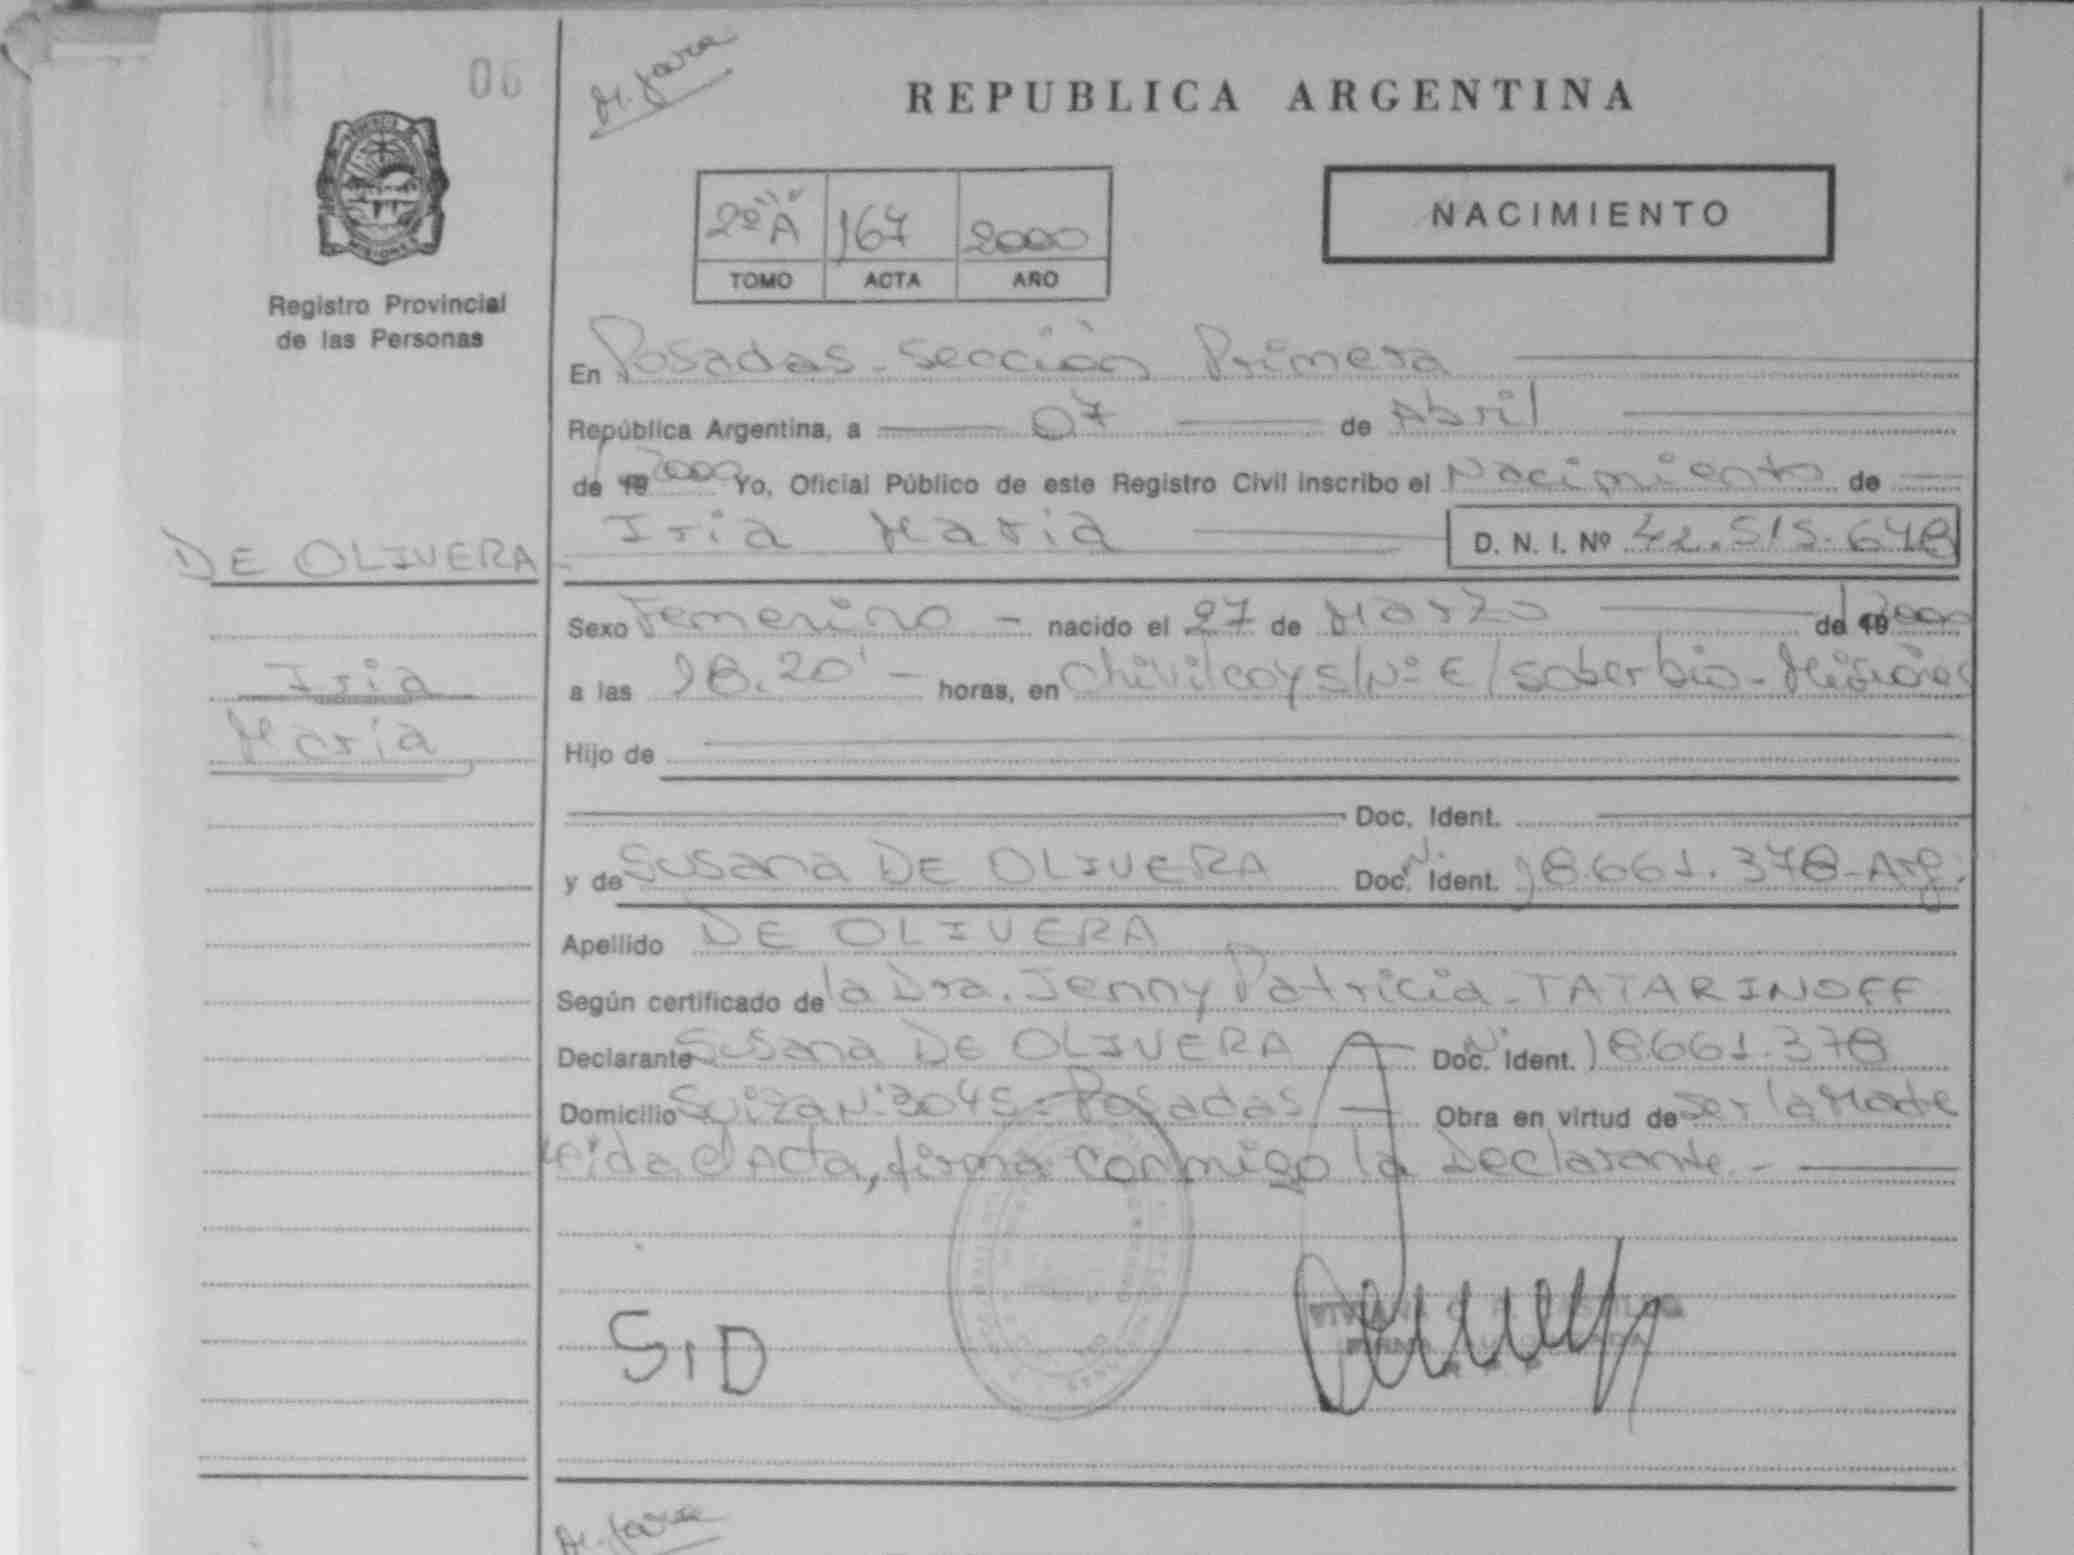 06
M. Jara
REPUBLICA ARGENTINA
2º "A" 167 2000
TOMO ACTA AÑO
NACIMIENTO
Registro Provincial
de las Personas
En Posadas - Sección Primera
República Argentina, a 07 de Abril
de 19 2000 Yo, Oficial Público de este Registro Civil inscribo el Nacimiento de
DE OLIVERA - Iria Maria D. N. I. Nº 42.515.648
Sexo Femenino - nacido el 27 de Marzo de 19 2000
Iria
a las 18.20' - horas, en Chivilcoy S/Nº E/ Soberbio - Misiones
Maria
Hijo de
Doc. Ident.
y de Susana DE OLIVERA Doc. Ident. N. 18.661.378 - Arg.
Apellido DE OLIVERA
Según certificado de la Dra. Jenny Patricia - TATARINOFF
Declarante Susana DE OLIVERA Doc. Ident. N. 18.661.378
Domicilio Suiza Nº 3045 - Posadas Obra en virtud de ser la Madre
Leida el Acta, firma conmigo la Declarante. -
S.D
M. Jara